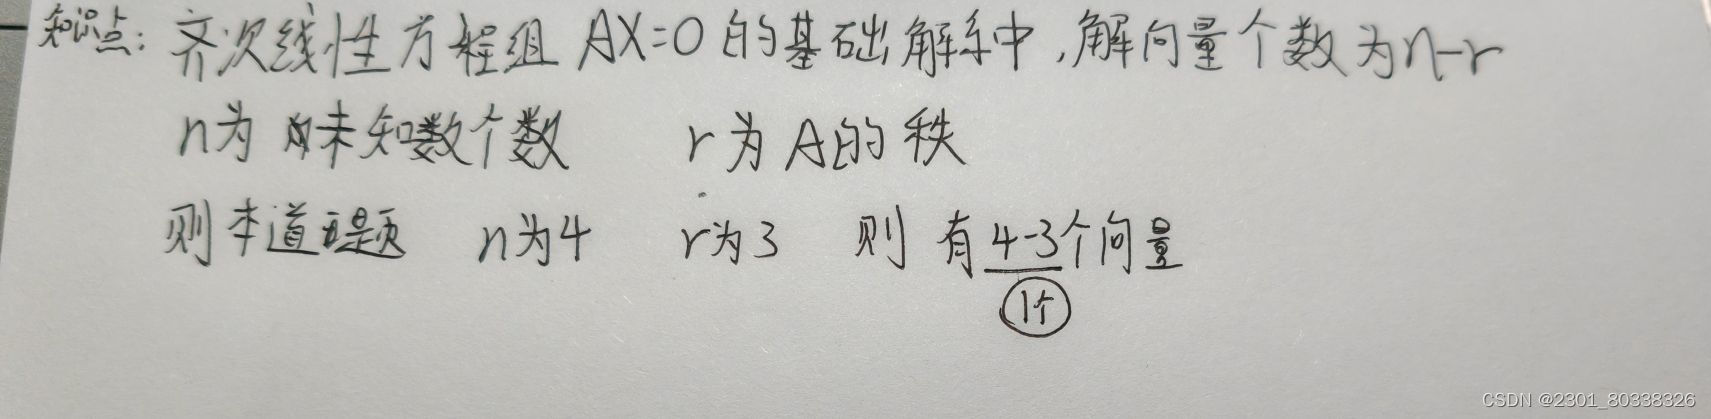 知识点: 齐次线性方程组 AX=0 的基础解系中,解向量个数为n-r
n为 未知数个数 r为A的秩
则本道题 n为4 r为3 则有4-3个向量
1个
CSDN @2301_80338326